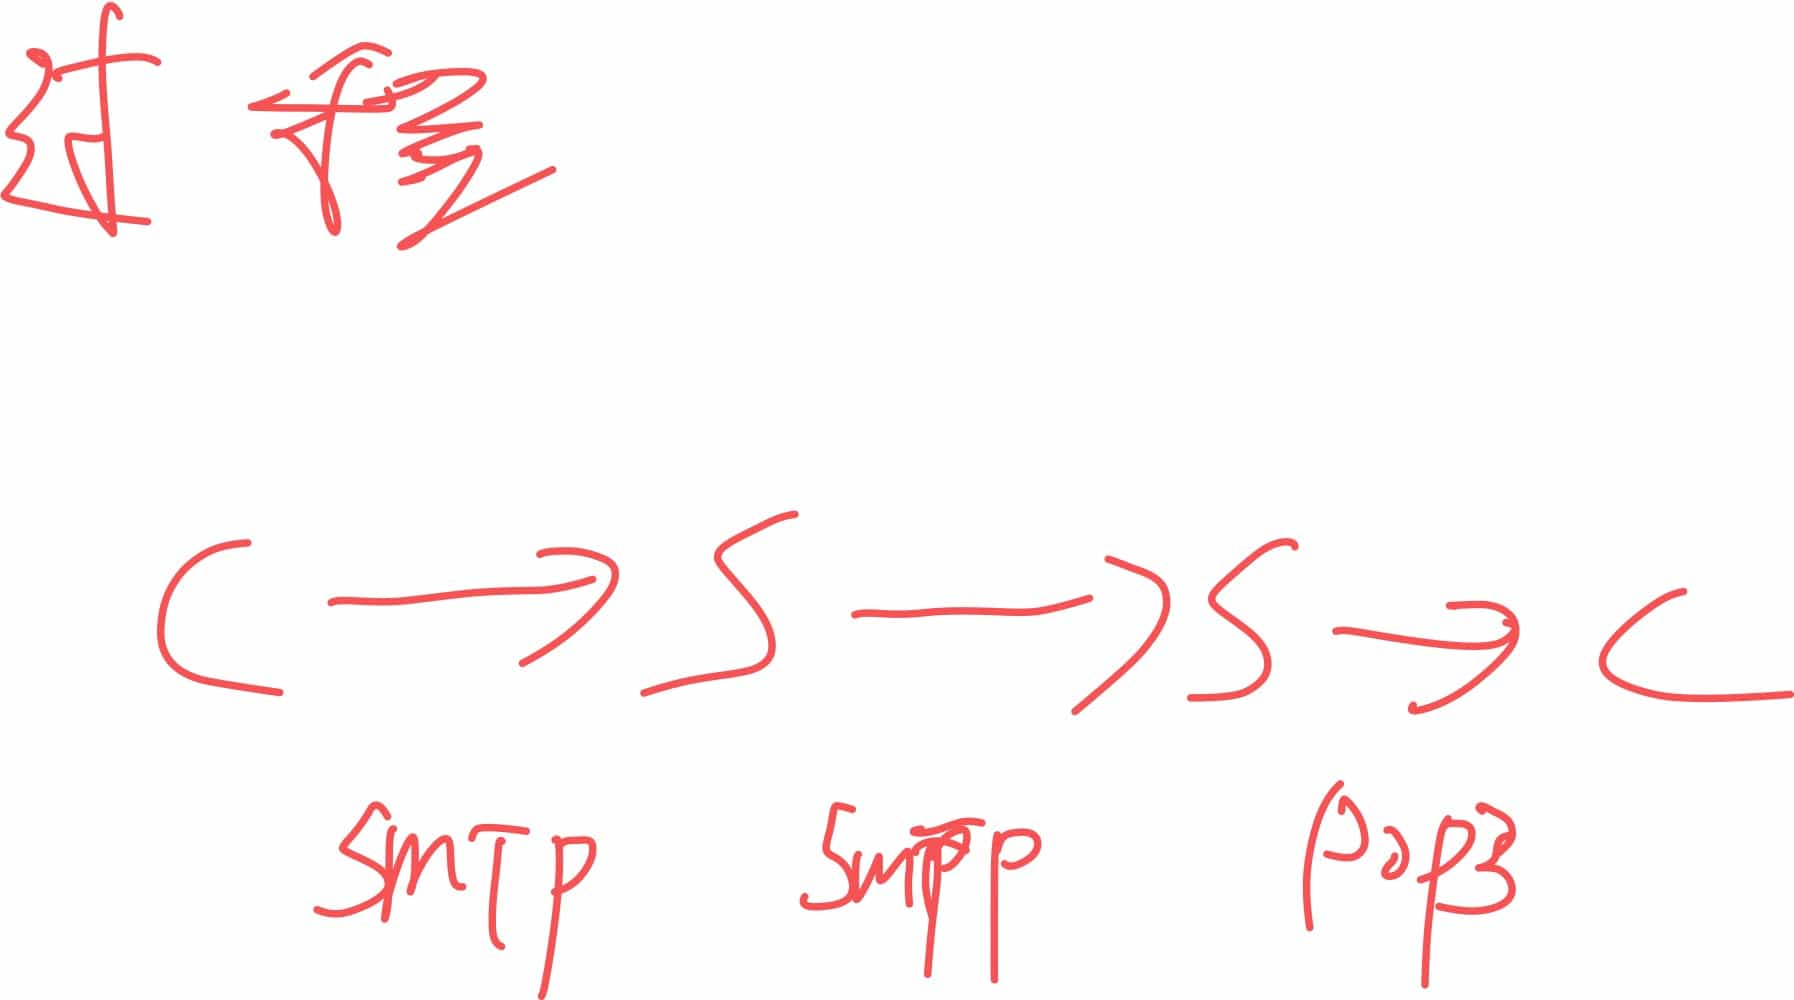 过程
C → S → S → C
SMTP SMTP POP3